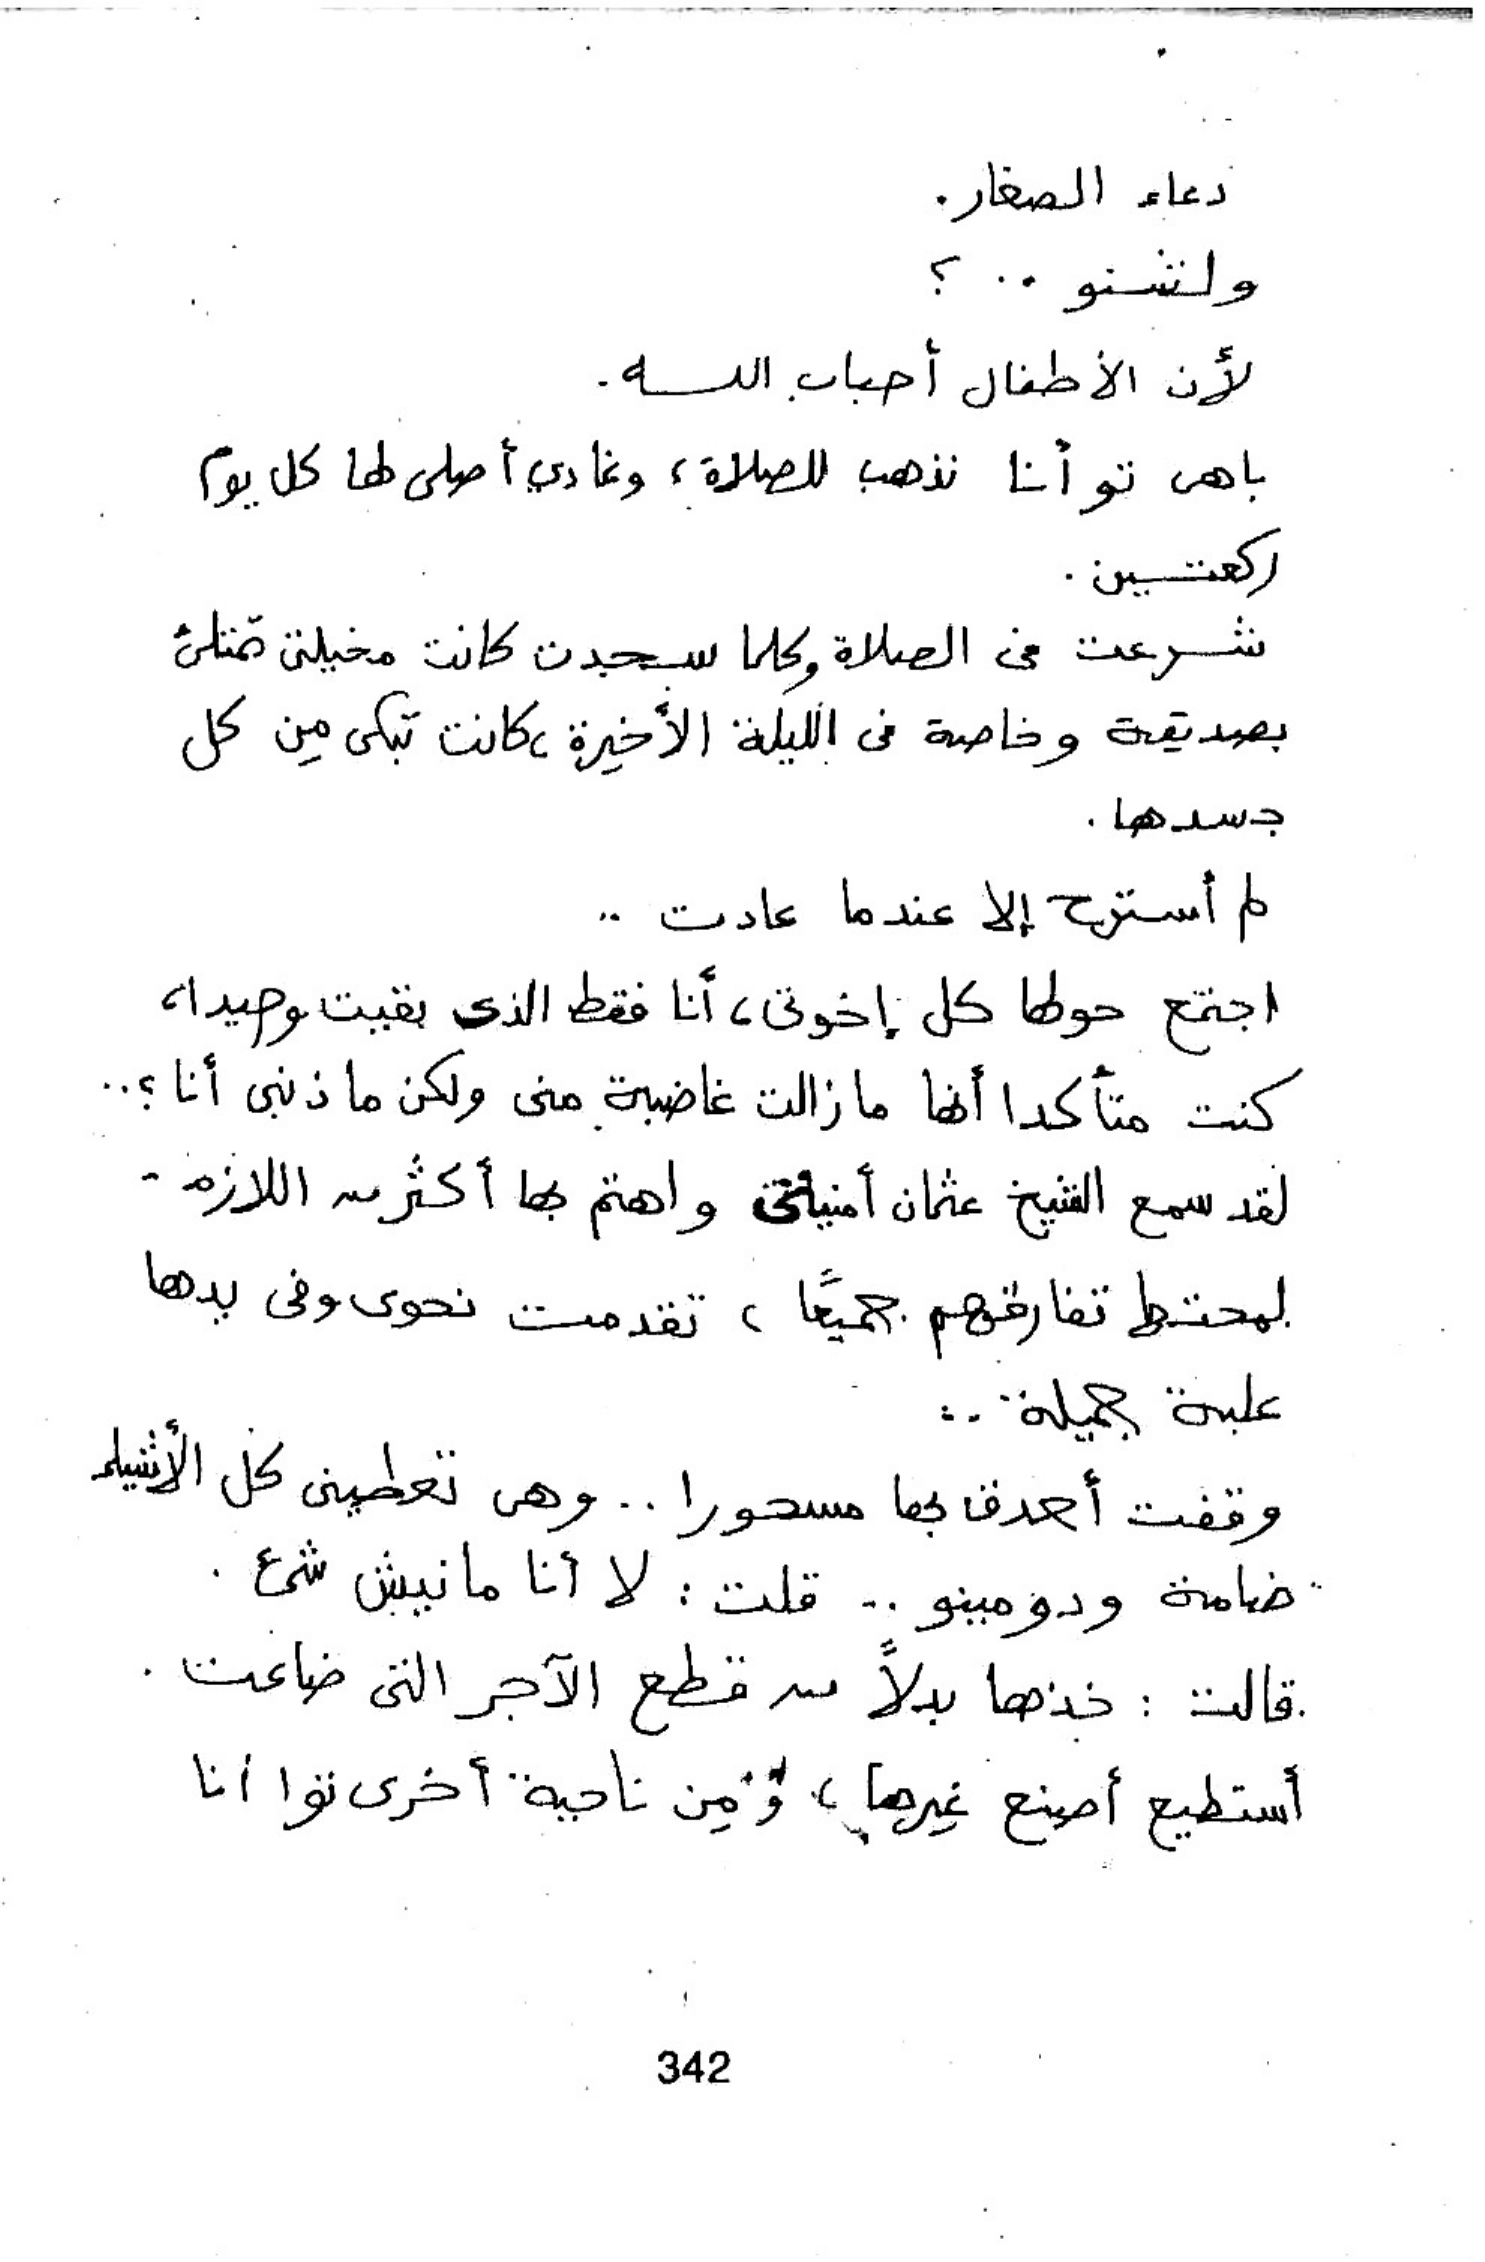 دعاء الصغار.
ولشنو .. ؟
لأن الأطفال أحباب الله.
باهى تو أنا نذهب للصلاة، وغادي أصلى لها كل يوم
ركعتين.
شرعت فى الصلاة وكلما سجدت كانت مخيلتى تمتلئ
بصديقة وخاصة فى الليلة الأخيرة، كانت تبكى مِن كل
جسدها.
لم أسترح إلا عندما عادت ..
اجتمع حولها كل إخوتى، أنا فقط الذى بقيت وحيدا،
كنت متأكدا أنها مازالت غاضبة منى ولكن ما ذنبى أنا؟..
لقد سمع الشيخ عثمان أمنياتى واهتم بها أكثر من اللازم.
لمحتها تفارقهم جميعًا، تقدمت نحوى وفى يدها
علبة جميلة ..
وقفت أحدق بها مسحورا .. وهى تعطينى كل الأشياء
ضامة ودومينو .. قلت : لا أنا مانبيش شىء .
قالت : خذها بدلاً من قطع الآجر التى ضاعت .
أستطيع أصنع غيرها، ومِن ناحية أخرى توا أنا
342